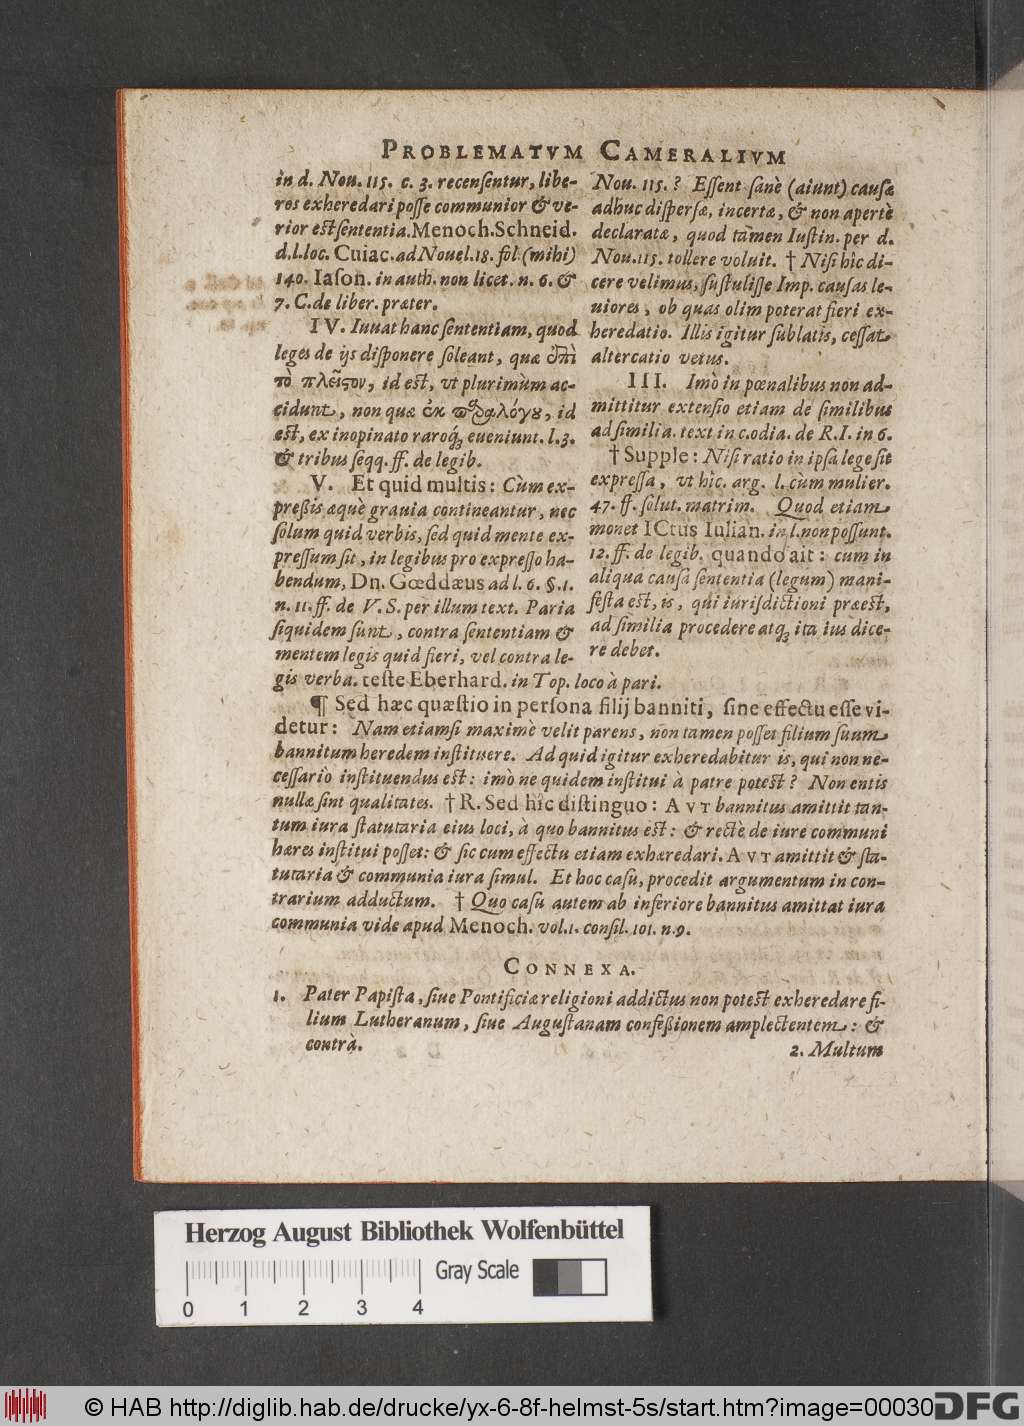 PROBLEMATVM CAMERALIVM
in d. Nou. 115. c. 3. recenſentur, libe-
ros exheredari poſſe communior & ve-
rior eſt ſententia. Menoch. Schneid.
d. l. loc. Cuiac. ad Nouel. 18. fol. (mihi)
140. Iaſon. in auth. non licet. n. 6. &
7. C. de liber. præter.
IV. Iuuat hanc ſententiam, quod
leges de ijs diſponere ſoleant, quæ ἐπὶ
τὸ πλεῖϛον, id eſt, vt plurimùm ac-
cidunt, non quæ ἐκ παραλόγου, id
eſt, ex inopinato raroq́; eueniunt. l. 3.
& tribus ſeqq. ff. de legib.
V. Et quid multis: Cùm ex-
preßis æquè grauia contineantur, nec
ſolum quid verbis, ſed quid mente ex-
preſſum ſit, in legibus pro expreſſo ha-
bendum, Dn. Gœddæus ad l. 6. §. 1.
n. 11. ff. de V. S. per illum text. Paria
ſiquidem ſunt, contra ſententiam &
mentem legis quid fieri, vel contra le-
gis verba. teſte Eberhard. in Top. loco à pari.
Nou. 115.? Eſſent ſanè (aiunt) cauſæ
adhuc diſperſæ, incertæ, & non apertè
declaratæ, quod tamen Iuſtin. per d.
Nou. 115. tollere voluit. † Niſi hîc di-
cere velimus, ſuſtuliſſe Imp. cauſas le-
uiores, ob quas olim poterat fieri ex-
heredatio. Illis igitur ſublatis, ceſſat
altercatio vetus.
III. Imò in pœnalibus non ad-
mittitur extenſio etiam de ſimilibus
ad ſimilia. text in c. odia. de R. I. in 6.
† Supple: Niſi ratio in ipſa lege ſit
expreſſa, vt hîc. arg. l. cùm mulier.
47. ff. ſolut. matrim. Quod etiam
monet ICtus Iulian. in l. non poſſunt.
12. ff. de legib. quando ait: cum in
aliqua cauſâ ſententia (legum) mani-
feſta eſt, is, qui iuriſdictioni præeſt,
ad ſimilia procedere atq; ita ius dice-
re debet.
¶ Sed hæc quæſtio in perſona filij banniti, ſine effectu eſſe vi-
detur: Nam etiamſi maximè velit parens, non tamen poſſet filium ſuum
bannitum heredem inſtituere. Ad quid igitur exheredabitur is, qui non ne-
ceſſariò inſtituendus eſt: imò ne quidem inſtitui à patre poteſt? Non entis
nullæ ſint qualitates. † R. Sed hîc diſtinguo: AVT bannitus amittit tan-
tum iura ſtatutaria eius loci, à quo bannitus eſt: & rectè de iure communi
hæres inſtitui poſſet: & ſic cum effectu etiam exhæredari. AVT amittit & ſta-
tutaria & communia iura ſimul. Et hoc caſu, procedit argumentum in con-
trarium adductum. † Quo caſu autem ab inferiore bannitus amittat iura
communia vide apud Menoch. vol. 1. conſil. 101. n. 9.
CONNEXA.
1. Pater Papiſta, ſiue Pontificiæ religioni addictus non poteſt exheredare fi-
lium Lutheranum, ſiue Auguſtanam confeßionem amplectentem: &
contrà.
2. Multum
Herzog August Bibliothek Wolfenbüttel
Gray Scale
0 1 2 3 4
© HAB http://diglib.hab.de/drucke/yx-6-8f-helmst-5s/start.htm?image=00030
DFG